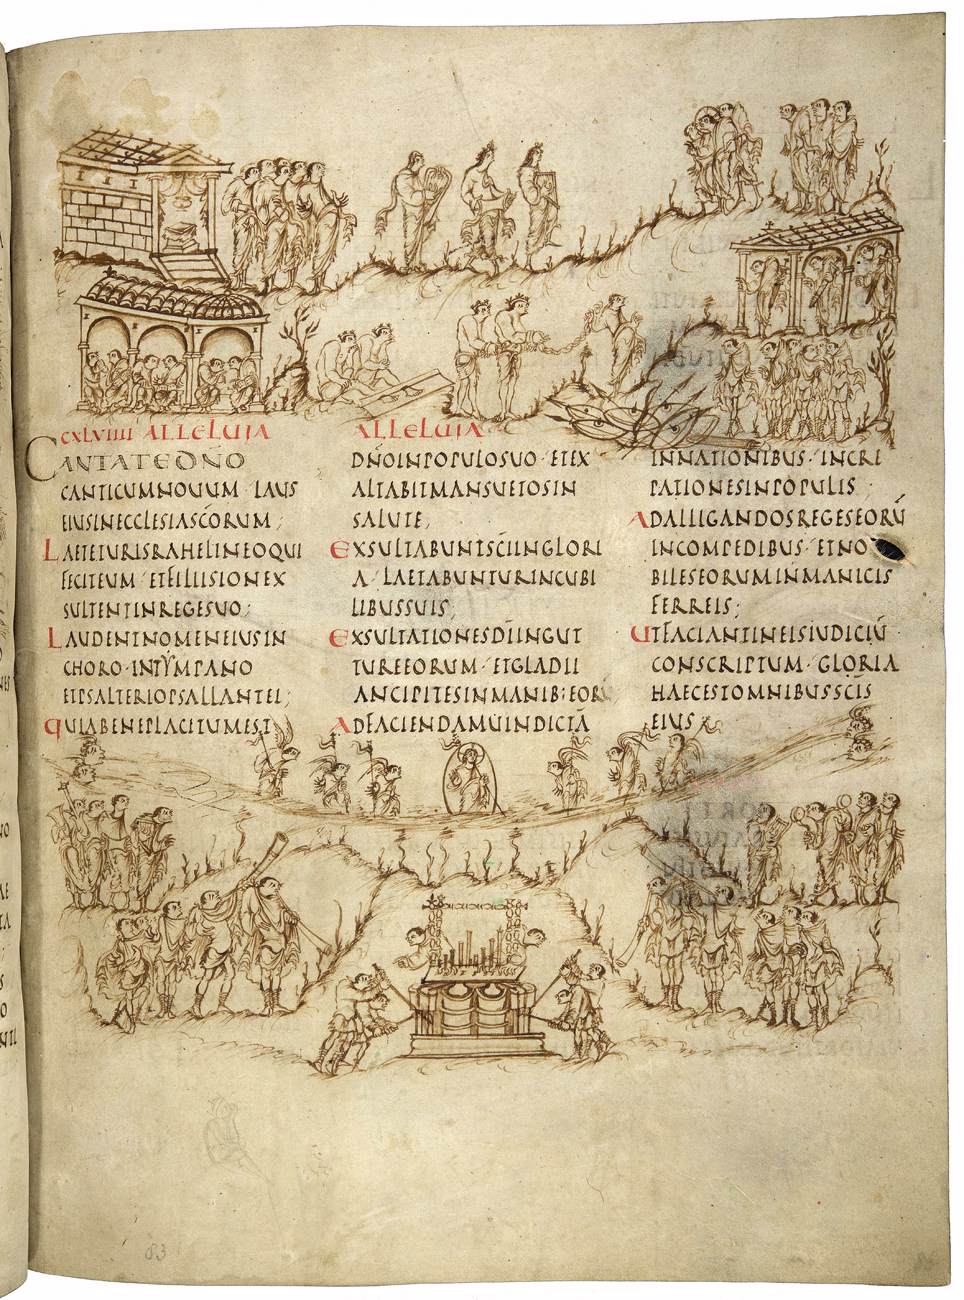 CXLVIIII ALLELUIA
CANTATE DÑO
CANTICUM NOUUM · LAUS
EIUS IN ECCLESIA SC̄ORUM ;
LAETETUR ISRAHEL IN EO QUI
FECIT EUM · ET FILII SION EX
SULTENT IN REGE SUO ;
LAUDENT NOMEN EIUS IN
CHORO · IN TYMPANO
ET PSALTERIO PSALLANT EI ;
QUIA BENEPLACITUM EST
ALLELUIA
DÑO IN POPULO SUO · ET EX
ALTABIT MANSUETOS IN
SALUTE ;
EXSULTABUNT SC̄I IN GLORI
A · LAETABUNTUR IN CUBI
LIBUS SUIS ;
EXSULTATIONES DĪ IN GUT
TURE EORUM · ET GLADII
ANCIPITES IN MANIB; EORU
AD FACIENDAM UINDICTĀ
IN NATIONIBUS · INCRE
PATIONES IN POPULIS ·
AD ALLIGANDOS REGES EORŪ
IN COMPEDIBUS · ET NO
BILES EORUM IN MANICIS
FERREIS ;
UT FACIANT IN EIS IUDICIŪ
CONSCRIPTUM · GLORIA
HAEC EST OMNIBUS SC̄IS
EIUS
83